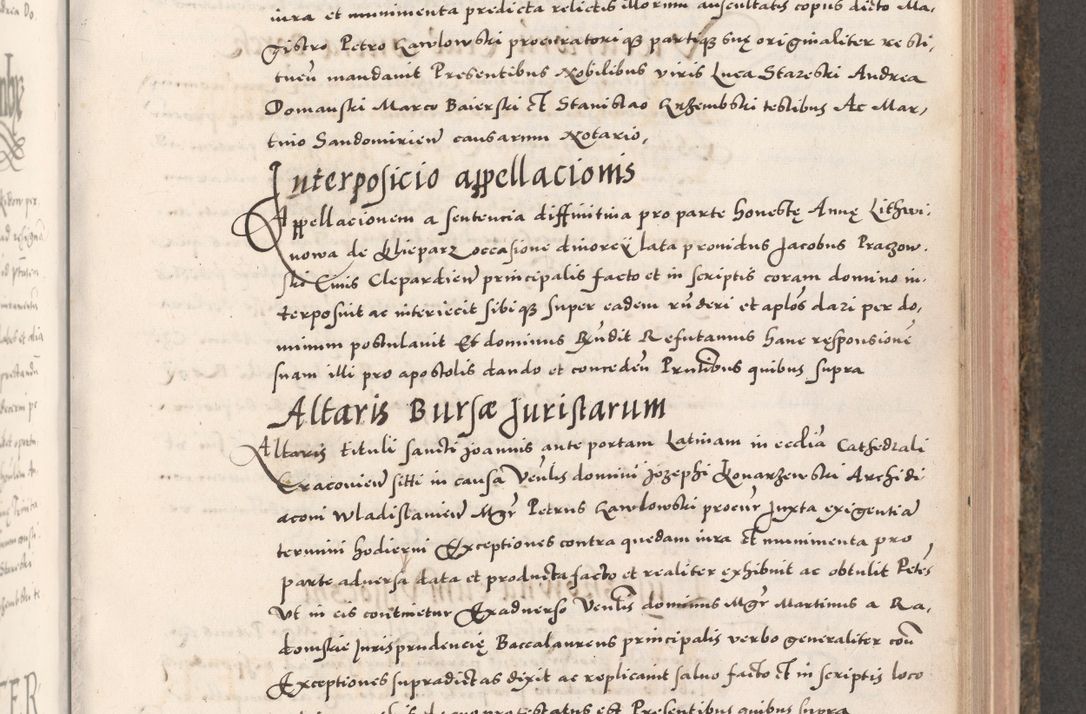 iura et munimenta predicta relictis illorum auscultatis copiis dicto Ma-
gistro Petro Kawlowski procuratoriqʒ partiqʒ suę originaliter resti-
tueñ mandauit Presentibus Nobilibus viris Luca Starzeski Andrea
Domanski Marco Baierski et Stanislao Krzembski testibus Ac Mar-
tino Sandomirieñ causarum Notario.
Interposicio appellacionis
Appellacionem a sentencia diffinitiua pro parte honestę Annę Lithwi-
nowa de Klieparz occasione diuorcij lata prouidus Jacobus Praczow-
ski Ciuis Clepardieñ principalis facto et in scriptis coram domino in-
terposuit ac interiecit sibiqʒ super eadem rñderi et aplõs dari per do-
minum postulauit Et dominus Rñdit Refutamus hanc responsionẽ
suam illi pro apostolis dando et concedeñ Pñtibus quibus supra
Altaris Bursæ Juristarum
Altaris tituli sancti Joannis ante portam Latinam in ecclia Cathedrali
Cracovieñ siti in causa Veñlis domini Jozephi Kowarzewski Archidi-
aconi Wladislavieñ Mgr Petrus Kawlowski procur Juxta exigentiã
termini hodierni Exceptiones contra quedam iura et munimenta pro
parte aduersa data et producta facto et realiter exhibuit ac obtulit Peteñs
Vt in eis continetur Exaduerso Veñlis dominus Mgr Martinus a Ra-
domskie Jurisprudencię Baccalaureus principalis verbo generaliter coñ
Exceptiones supradictas dixit ac replicauit saluo facto et in scriptis loco
protestatus est Presentibus quibus supra